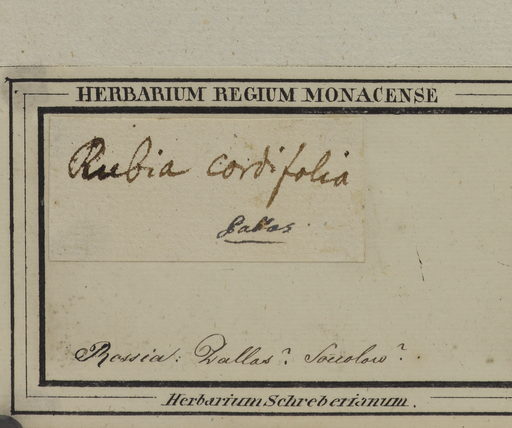 HERBARIUM REGIUM MONACENSE
Rubia cordifolia
Pallas
Rossia: Pallas? Socolow?.
Herbarium Schreberianum.